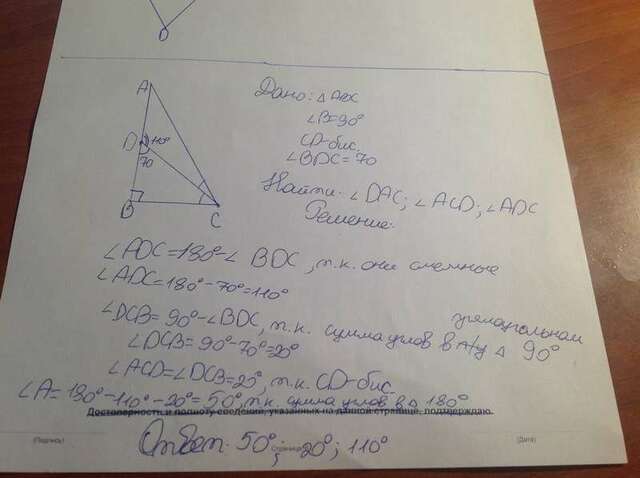 D
A
Дано: △ ABC
∠B=90°
CD-бис.
∠BDC=70
D 110°
70
B C
Найти: ∠DAC; ∠ACD; ∠ADC
Решение:
∠ADC=180°-∠BDC, т.к. они смежные
∠ADC=180°-70°=110°
прямоугольном
∠DCB=90°-∠BDC, т.к. сумма углов в △ 90°
∠DCB=90°-70°=20°
∠ACD=∠DCB=20°, т.к. CD-бис.
∠A=180°-110°-20°=50°, т.к. сумма углов в △ 180°
Достоверность и полноту сведений, указанных на данной странице, подтверждаю.
(Подпись) Страница (Дата)
Ответ: 50°; 20°; 110°